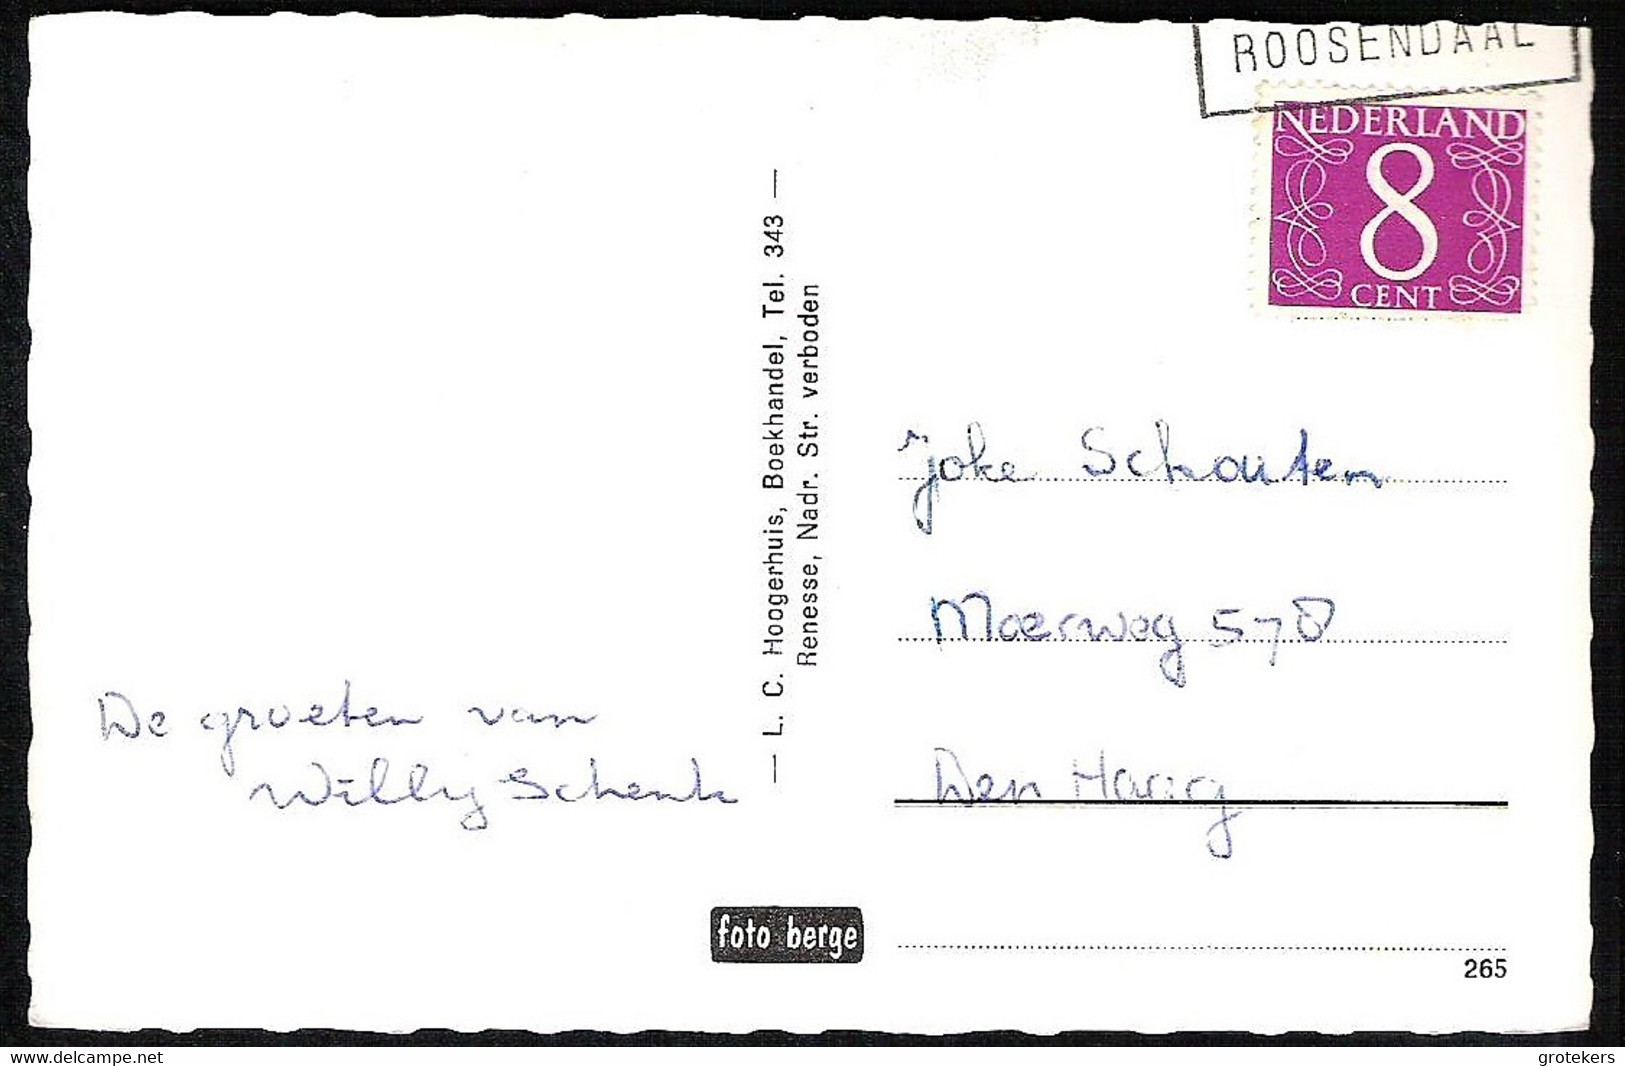 ROOSENDAAL
NEDERLAND
8
CENT
— L. C. Hoogerhuis, Boekhandel, Tel. 343 —
Renesse, Nadr. Str. verboden
Joke Schouten
Moerweg 578
Den Haag
De groeten van
Willy Schenk
foto berge
265
www.delcampe.net
grotekers